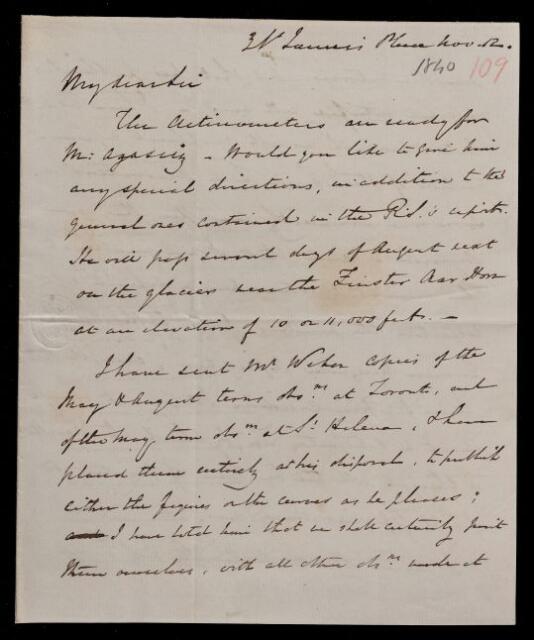 St James's Place Nov.
1840 109
My dear Sir
The Actinometers are ready for
Mr. Agassiz – Would you like to give him
any special directions, in addition to the
general ones contained in the R.S.'s reports.
He will pass several days of August next
on the glaciers near the Finster Aar Horn
at an elevation of 10 or 11,000 feet. –
I have sent Mr. Weber copies of the
May & August terms obs.ns at Toronto, and
of the May term obs.ns at St Helena, & have
placed them entirely at his disposal, to publish
either the figures or the curves as he pleases;
and I have told him that we shall certainly print
them ourselves, with all other obs.ns made at